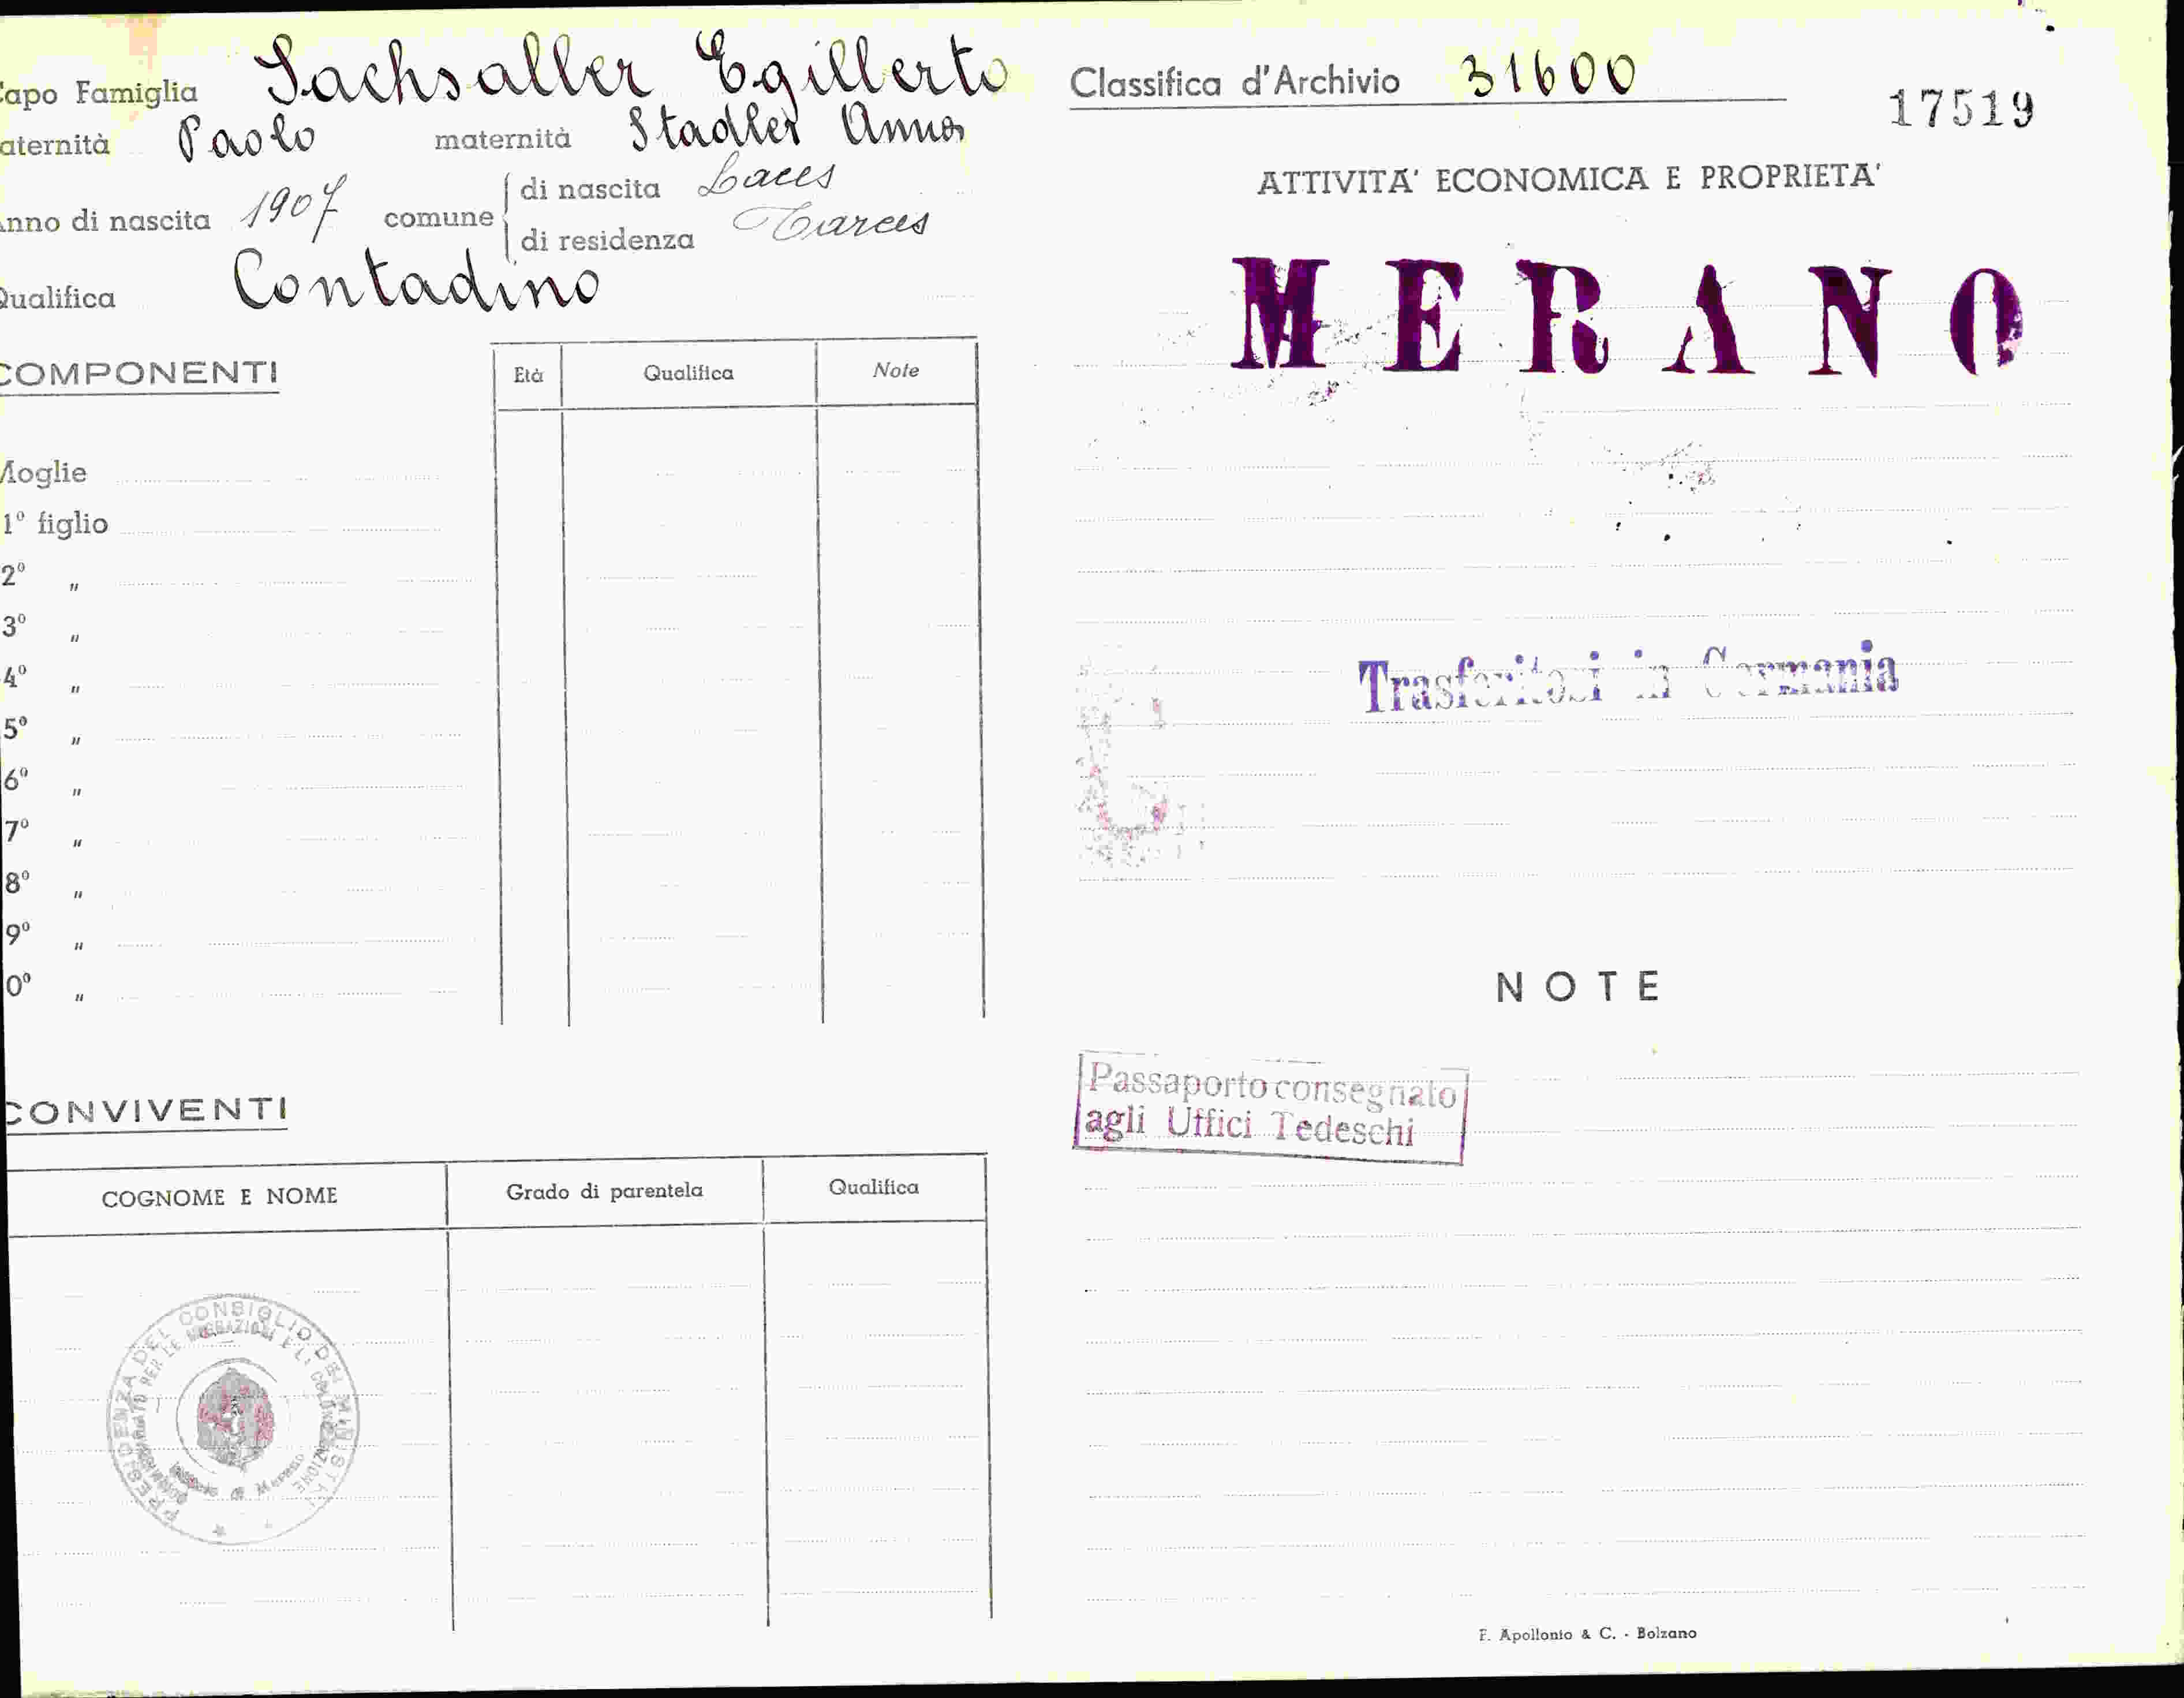 Capo Famiglia Sachsaller Egilberto
aternità Paolo maternità Stadler Anna
Anno di nascita 1907 comune di nascita Laces
di residenza Tarces
Qualifica Contadino
COMPONENTI
Età Qualifica Note
Moglie
1º figlio
2º "
3º "
4º "
5º "
6º "
7º "
8º "
9º "
0º "
CONVIVENTI
COGNOME E NOME Grado di parentela Qualifica
PRESIDENZA DEL CONSIGLIO DEI MINISTRI
PER LE MIGRAZIONI E LA COLONIZZAZIONE
Merano
Classifica d'Archivio 31600
17519
ATTIVITA' ECONOMICA E PROPRIETA'
MERANO
Trasferitosi in Germania
NOTE
Passaporto consegnato
agli Uffici Tedeschi
F. Apollonio & C. - Bolzano